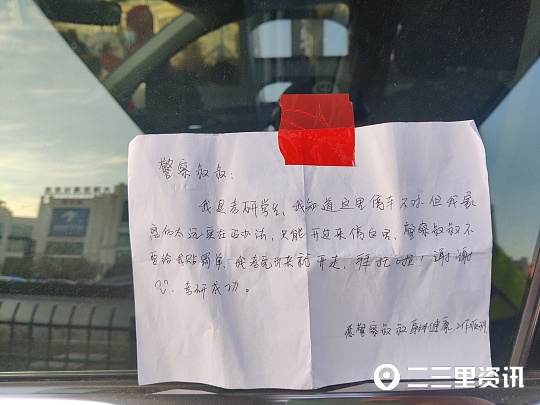 警察叔叔：
我是考研学生、我知道这里停车不对但我家
离的太远实在没办法，只能开过来停这里、警察叔叔不
要给我贴罚单、我考完出来就开走、拜托啦！谢谢
考研成功。
愿警察叔叔身体健康、工作顺利
二三里资讯